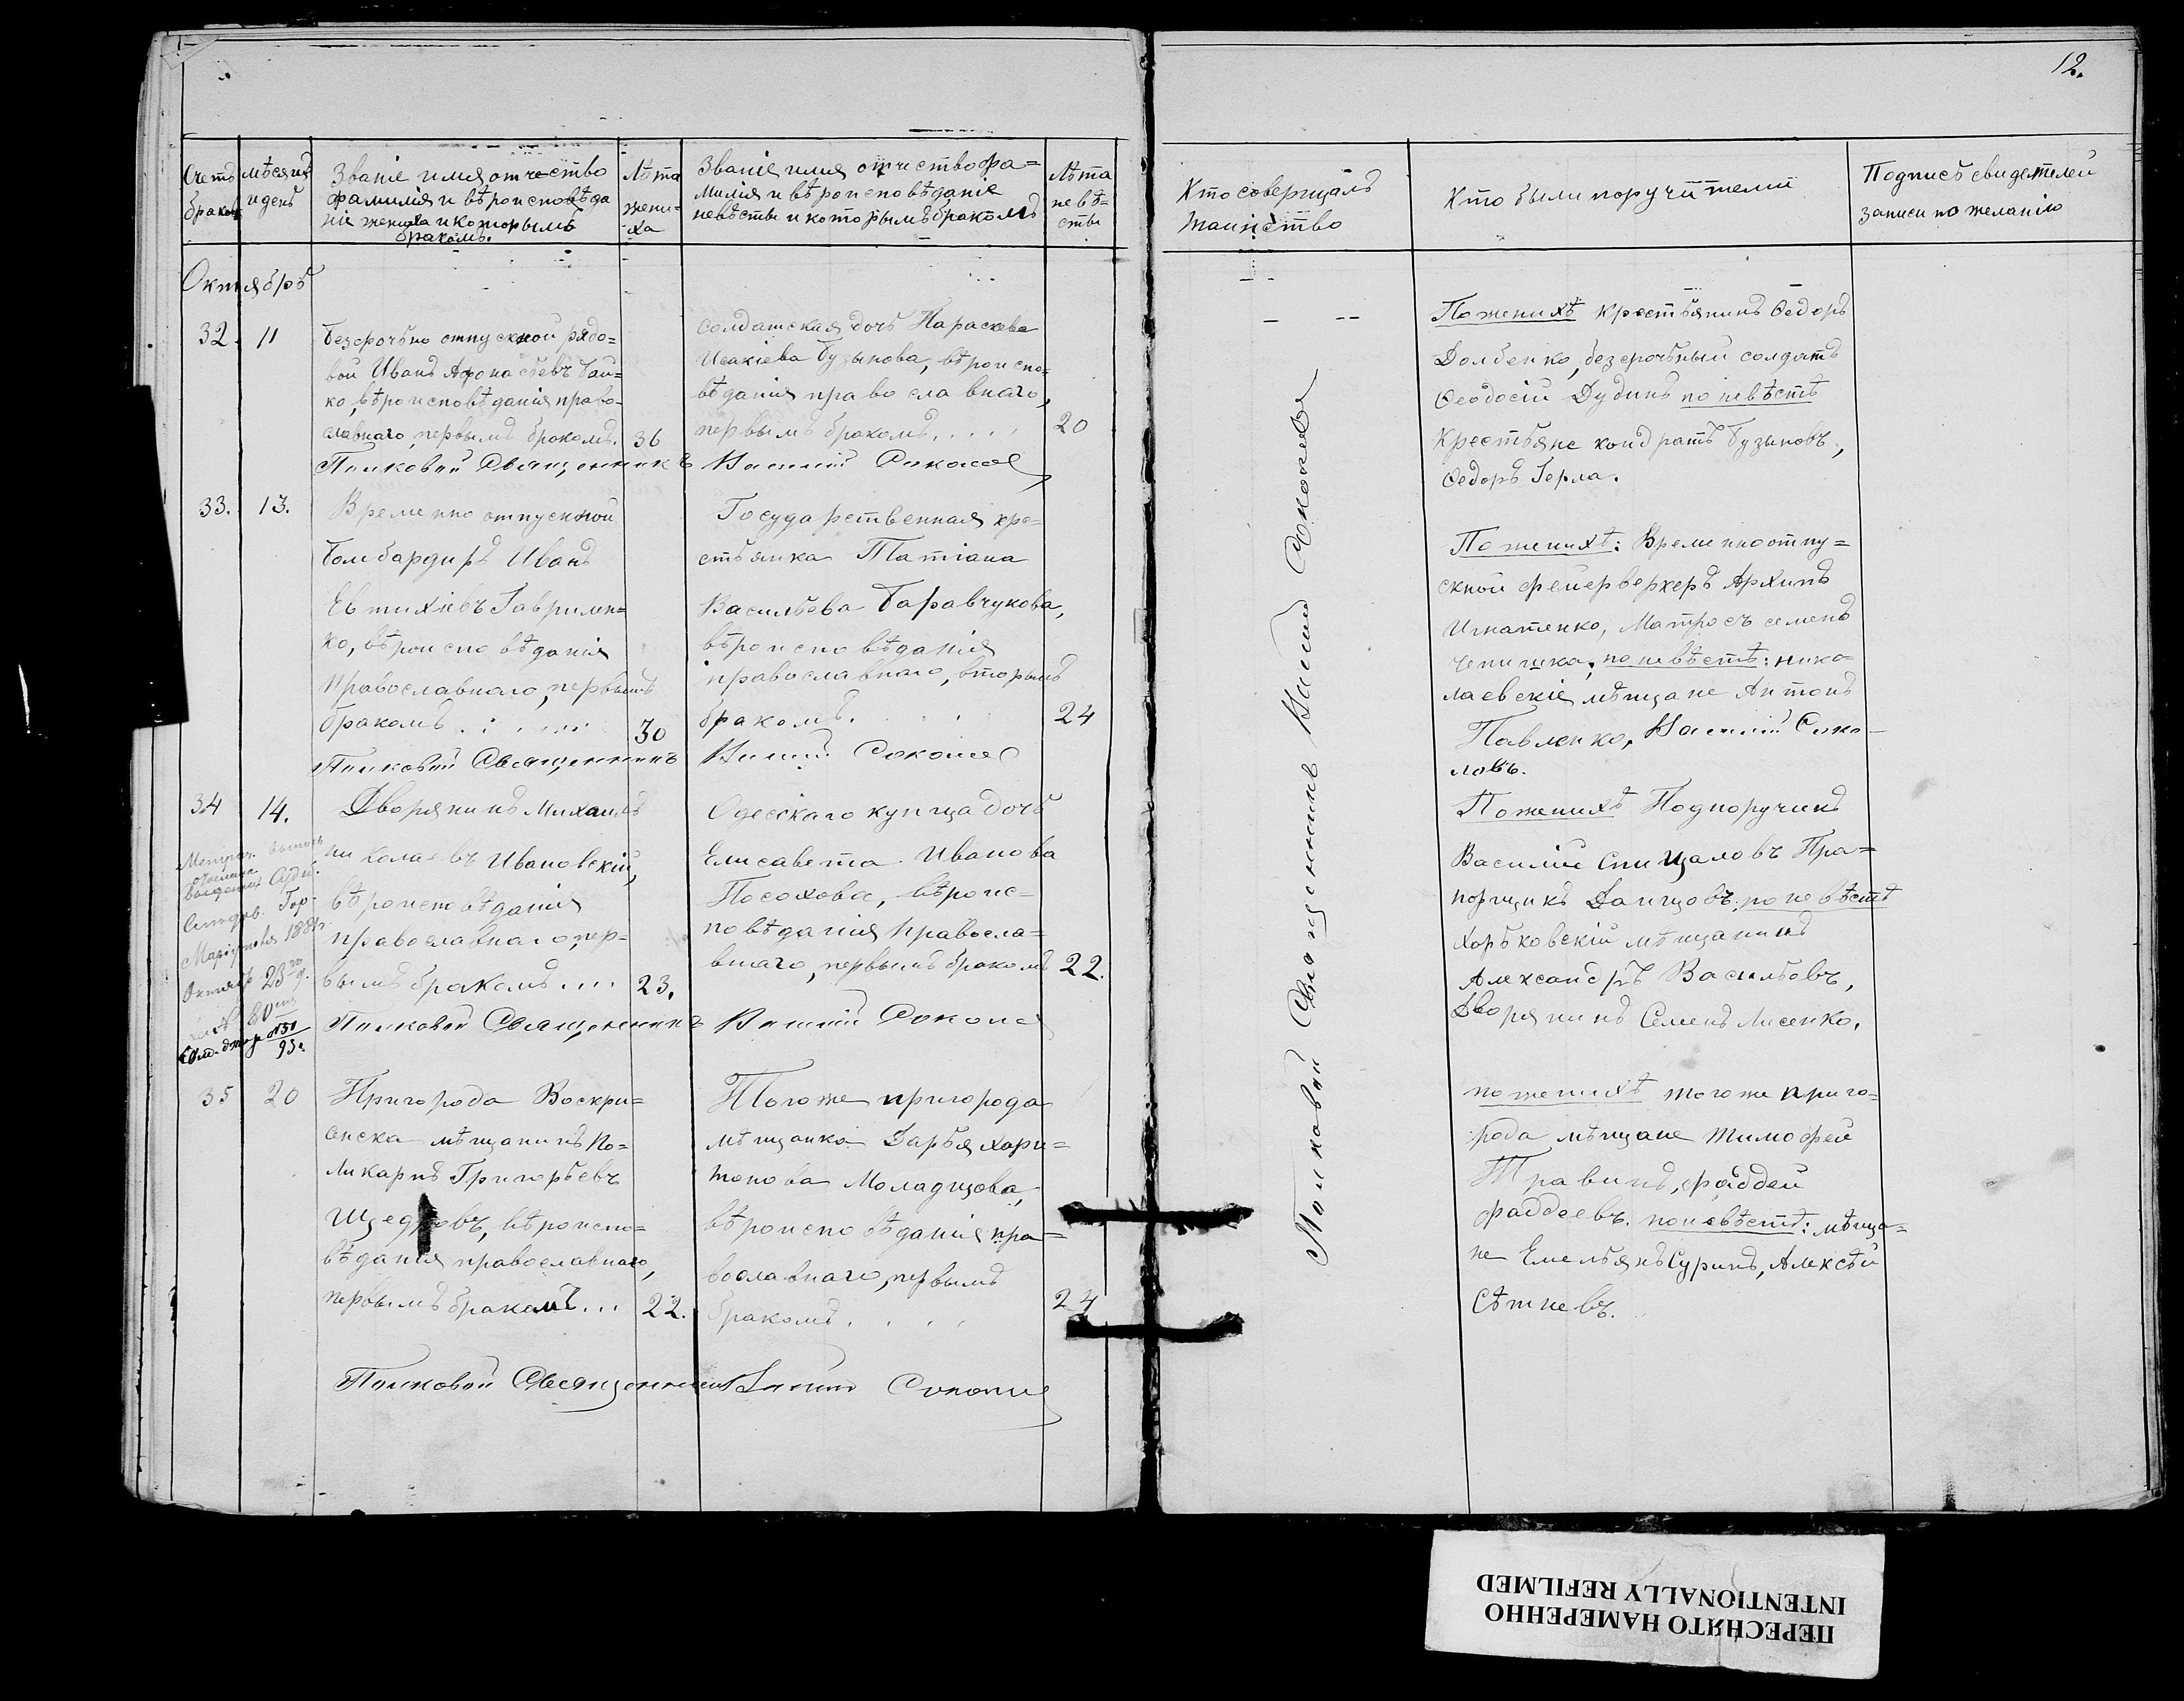 12.
Счетъ браковъ
мѣсяцъ и день
Званіе имя отчество
фамилія и вѣроисповѣда
ніе жениха и которымъ
бракомъ.
Лѣта
жени=
ха
Званіе имя отчество фа=
милія и вѣроисповѣданіе
невѣсты и которымъ бракомъ
Лѣта
невѣ=
сты
Кто совершалъ
таинство
Кто были поручители
Подпись свидетелей
записи по желанію
Октябрь
32. 11
безсрочьно отпускной рядо=
вой Иванъ Афонасьевъ
ко, вѣроисповѣданія право-
славнаго, первымъ бракомъ. 36
солдатская дочь Параскева
Исакіева Бузынова, вѣроиспо-
вѣданія православнаго,
первымъ бракомъ..... 20
Полковой Священникъ Василій Соколов
По женихѣ крестьянинъ Ѳедоръ
Долбенко, безсрочьный солдатъ
Ѳеодосій Дудинъ по невѣстѣ
Крестьяне Кондратъ Бузыновъ,
Ѳедоръ Герла.
33. 13.
Временно отпускной
бомбардиръ Иванъ
Евтихіевъ Гаврилен=
ко, вѣроисповѣданія
православнаго, первымъ
бракомъ...... 30
Государственная кре=
стьянка Татіана
Васильева Баравчукова,
вѣроисповѣданія
православнаго, вторымъ
бракомъ.... 24
Полковой Священникъ Василій Соколов
По женихѣ: Временноотпу=
скной фейерверкеръ Архипъ
Игнатенко, Матросъ Семенъ
Чепишка, по невѣстѣ: нико=
лаевскіе мѣщане Антонъ
Павленко, Василій Соко-
ловъ.
34 14.
Дворянинъ Михаилъ
Николаевъ Ивановскій,
вѣроисповѣданія
православнаго, пер=
вымъ бракомъ... 23.
Одесскаго купца дочь
Елисавета Иванова
Посохова, вѣроис=
повѣданія правосла=
внаго, первымъ бракомъ 22.
Полковой Священникъ Василій Соколов
По женихѣ Подпоручикъ
Василій Спицаловъ Пра=
порщикъ Данцовъ, по невѣстѣ
Харьковскій мѣщанинъ
Александръ Васильевъ,
Дворянинъ Семенъ Лисенко.
35 20
Пригорода Воскри=
сенска мѣщанинъ По=
ликарпъ Григорьевъ
Щедровъ, вѣроиспо=
вѣданія православнаго,
первымъ бракомъ... 22.
Тогоже пригорода
мѣщанка Дарья Хари=
тонова Моладцова,
вѣроисповѣданія пра=
вославнаго, первымъ
бракомъ.... 24
Полковой Священникъ Василій Соколов
по женихѣ тогоже приго=
рода мѣщане Тимофей
Травинъ, Фаддей
Фаддеевъ. по невѣстѣ: мѣща=
не Емельянъ Суринъ, Алексѣй
Сѣтневъ.
Полковой Священникъ Василій Соколов
ПЕРЕСНЯТО НАМЕРЕННО
INTENTIONALLY REFILMED